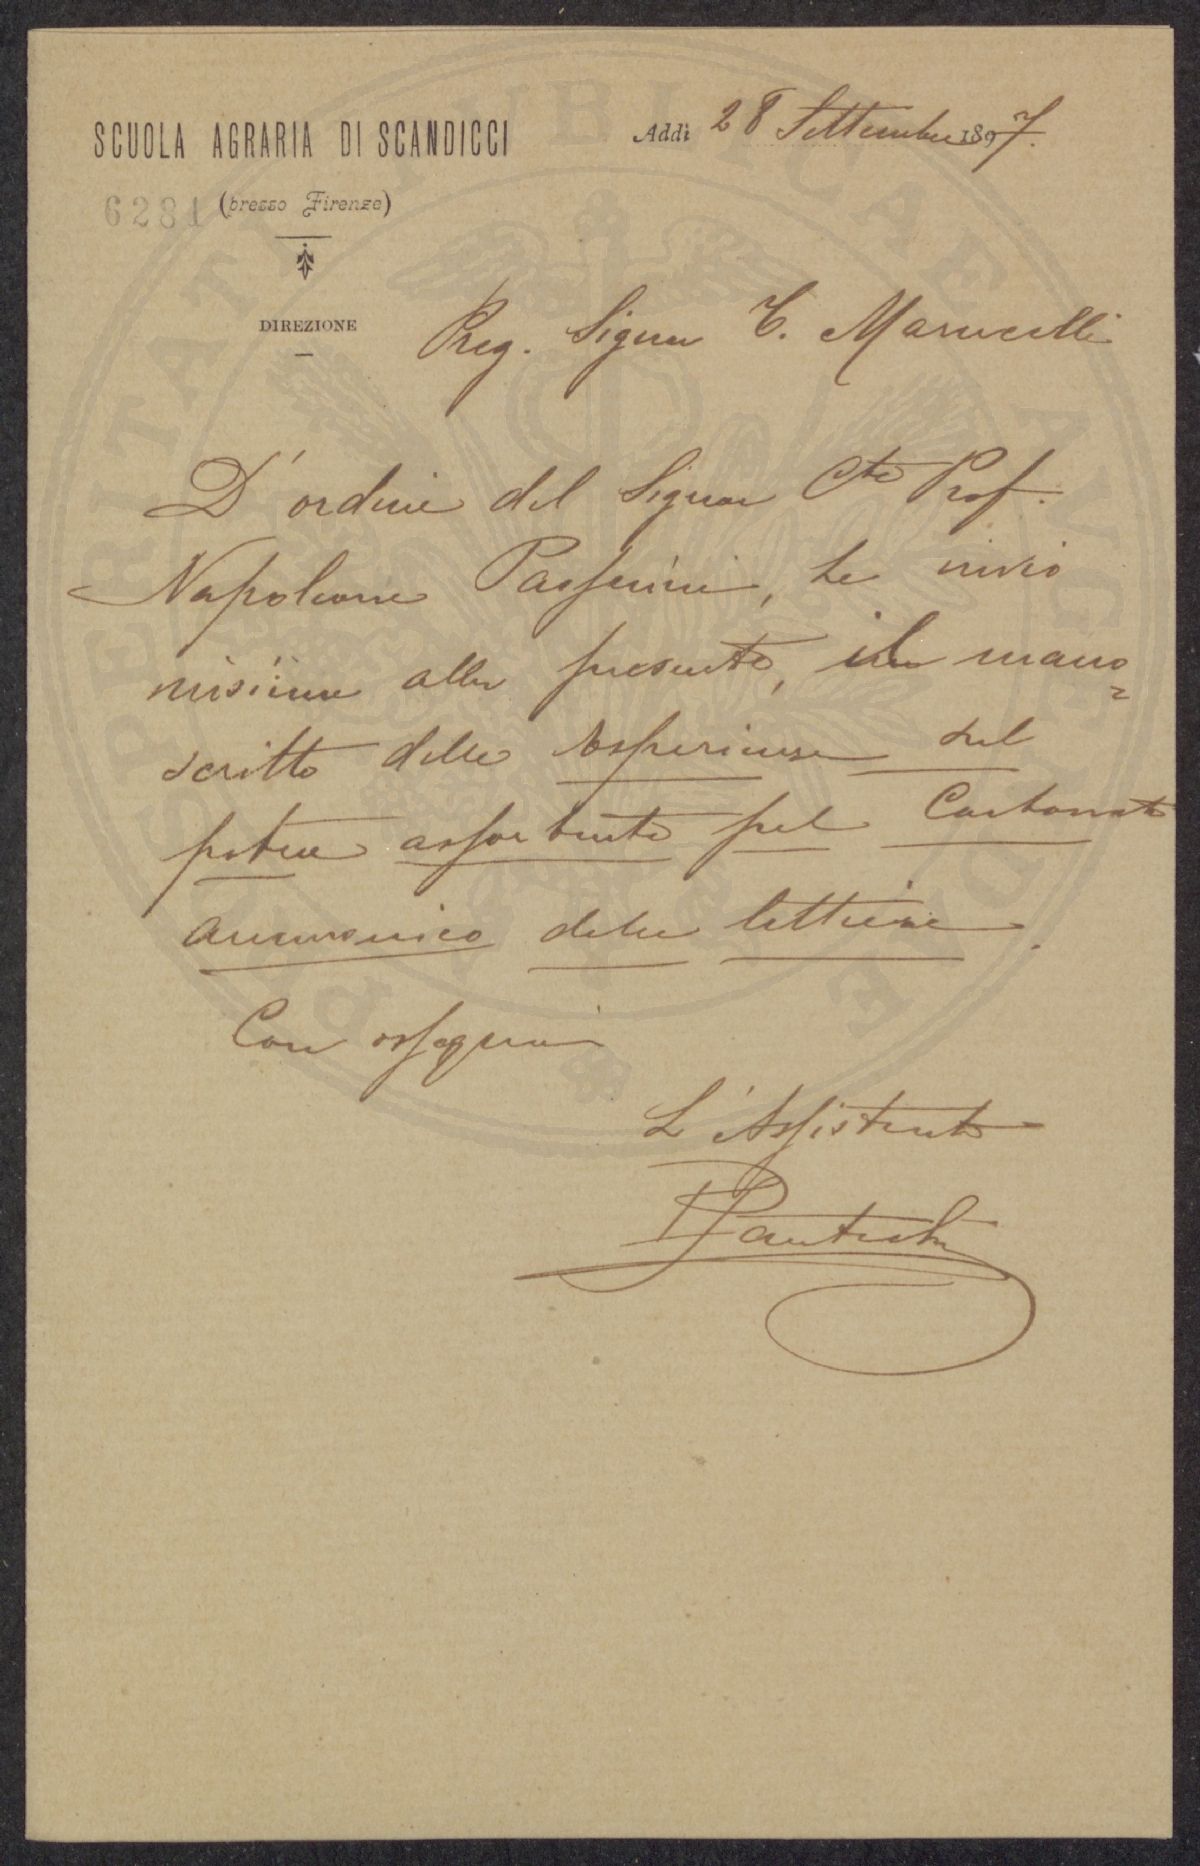 SCUOLA AGRARIA DI SCANDICCI
Addì 28 Settembre 1897.
6281 (presso Firenze)
DIREZIONE
Preg. Signor C. Marucelli
D'ordine del Signor Cte Prof.
Napoleone Passerini, Le invio
unisiime alla presente, il mano=
scritto delle Esperienze sul
potere assorbente pel Carbonato
ammonico delle lettiere.
Con ossequi
L'Assistente
PROSPERITATI PUBLICAE AUGENDAE